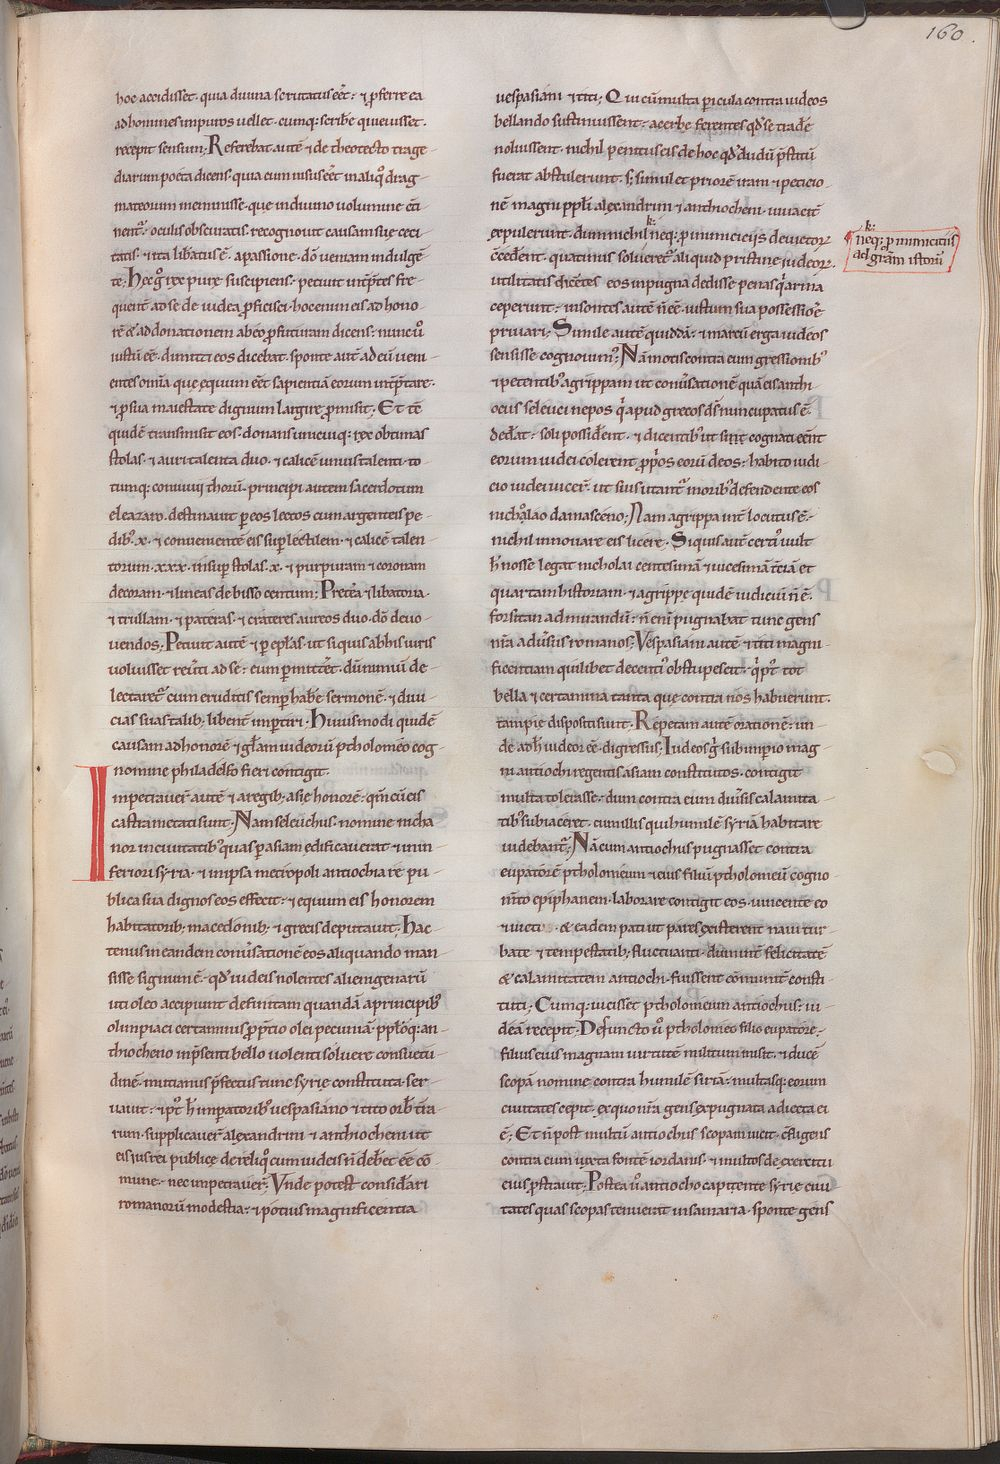 160.
hoc accidisset. quia diuina scrutatus eēt: ⁊ ꝑferre ea
ad homines impuros uellet. cumq; scribe quieuisset.
recepit sensum; Referebat autē ⁊ de theotecto trage-
diarum poeta dicens. quia cum uisus eēt in aliqͦ drag-
mateorum meminisse. que in diuino uolumine cti-
oculis obscuratis. recognouit causam suę ceci-
tatis. ⁊ ita libatus ē. a passione. dō ueniam indulgē-
te; Hec gͦ rex pure suscipiens. petiuit intp̄tes fre-
quent ad se de iudea ꝓficisci. hoc enim eis ad hono-
rē & ad donationem ab eo ꝓfuturam dicens: nunc uͦ
iustū eē. dimitti eos dicebat. sponte autē ad eū ueni-
entes omīa que equum eēt sapientiā eorum intp̄tare.
⁊ ꝓ sua maiestate dignum largire ꝓmisit; Et tē
quidē transmisit eos. donans unicuiq; xex obtimas
stolas. ⁊ auri talenta duo. ⁊ calicē unius talenti. to-
tumq; conuiuij thorū. principi autem sacerdotum
eleazaro. destinauit ꝑ eos lectos cum argenteis pe-
dibꝰ .x. ⁊ conuenientē eis suꝑlectilem. ⁊ calicē talen-
torum .xxx. insuꝑ stolas .x. ⁊ purpuram ⁊ coronam
decoram. ⁊ lineas de bisso centum; Pretea ⁊ libatoria.
⁊ trullam. ⁊ pateras. ⁊ crateres aureos duo. dō deuo-
uendos; Petiuit autē ⁊ ꝑ epl̄as. ut si quis ab his uiris
uoluisset reuti ad se: eum ꝑmitteret. dūmmū de-
lectaretꝰ cum eruditis semꝑ habe sermonē. ⁊ diui-
cias suas talib; libent imꝑtiri. Huiusmodi quidē
causam ad honorē ⁊ gl̄am iudeorū ptholomeo cog-
nomine philadelfo fieri contigit.
Impetrauer autē ⁊ a regib; asie honorē: qm̄ cū eis
castra metati sunt. Nam seleuchus. nomine nicha-
nor in ciuitatibꝰ quas ꝑ asiam edificauerat ⁊ in in-
feriori syria. ⁊ in ipsa metropoli antiochia re pu-
blica sua dignos eos effecit: ⁊ equum eis honorem
habitatorib; macedonib; ⁊ grecis deputauit. Hac-
tenus in eandem conusationē eos aliquando man-
sisse signum ē. qd iudeis nolentes alienigenarū
uti oleo accipiunt definitam quandā a principibꝰ
olimpiaci certaminis ꝓ ptio olei pecuniā. ppl̄oq; an-
thiocheno in psenti bello uolenti soluere consuetu-
dinē. mutianus pfectus tunc syrie constituta. ser-
uauit: ⁊ pt h imꝑatoribꝰ uespasiano ⁊ tito orbē tra-
rum. supplicauer alexandrini ⁊ anthiocheni ut
eis iusrei publice de reliqͦ cum iudeis n̄ debet eē cō-
mune. nec impetrauer; Vnde potest considari
romanorū modestia: ⁊ potius magnificentia
uespasiani ⁊ titi; Qui cū multa ꝑicula contra iudeos
bellando sustinuissent: acerbe ferentes qd se tradē
noluissent. nichil penitus eis de hoc qd dudū pstitū
fuerat abstulerunt. s; simul et priorē iram ⁊ peticio-
nē magni ppl̄i alexandrini ⁊ anthiocheni. uiuaciter
expulerunt. dum nichil k: neq; ꝓ inimicicijs deuictorꝝ
ēcedent. quatinus solueret aliquid pristine iudeorꝝ.
utilitatis. dicētes eos in pugna dedisse penas. q̄ arma
ceperunt: insontes autē n̄ eē. iustum sua possessioē
priuari; Simile autē quiddā: ⁊ marcū erga iudeos
sensisse cognouimꝰ; Nā motis contra eum gressionibꝰ
⁊ petentibꝰ agrippam ut conusationē quā eis anthi-
ocus seleuci nepos q̄ apud grecos ds̄ nuncupatus ē.
dedat: soli possident. ⁊ dicentibꝰ ut sine cognati eent
eorum iudei colerent ꝓprios eorū deos: habito iudi-
cio iudei uicer. ut suis utantꝰ moribꝰ defendente eos
nicholao damasceno; Nam agrippa int locutus ē.
nichil innouare eis licere. Siquis autē certꝰ uult
h nosse legat nicholai centesimā ⁊ uicesimā tciā et
quartam historiam. ⁊ agrippe quidē iudicium n̄ ē.
forsitan admirandū: n̄ eni pugnabat tunc gens
nr̄a adusus romanos; Vespasiani autē ⁊ titi magni-
ficentiam quilibet decent obstupescit. qp̄t tot
bella ⁊ certamina tanta que contra nos habuerunt.
tam pie dispositi sunt. Repetam autē orationē: un-
de ad h uideor eē digressus; Iudeos g sub imꝑio mag-
ni antiochi regentis asiam constitutos. contigit
multa tolerasse. dum contra eum diuisis calamita-
tibꝰ subiaceret. cum illis qui humilē syriā habitare
uidebantꝰ; Nā cum antiochus pugnasset contra
eupatorē ptholomeum ⁊ eius filiū ptholomeū cogno-
mīto epiphanem. laborare contigit eos. uincente eo
⁊ uicto. & eadem pati ut pares existerent naui tur-
bate ⁊ tempestatib; fluctuanti. dum int felicitatē
& calamitatem antiochi. fuissent cōmunit consti-
tuti; Cumq; uicisset ptholomeum antiochus: iu-
deā recepit. Defuncto uͦ ptholomeo filio eupatore.
filius eius magnam uirtutē militum misit. ⁊ ducē
scopā nomine contra humilē siriā: multasq; eorum
ciuitates cepit. ex quo nr̄a gens expugnata adiecta ei
ē; Et n̄ post multū antiochus scopam uicit. cfligens
contra eum iuxta fontē iordanis. ⁊ multos de exercitu
eius pstrauit; Postea uͦ antiocho capiente syrie ciui-
tates quas scopas tenuerat in samaria. sponte gens
k:
neq; ꝓ inimicitiis
ad gram istorū